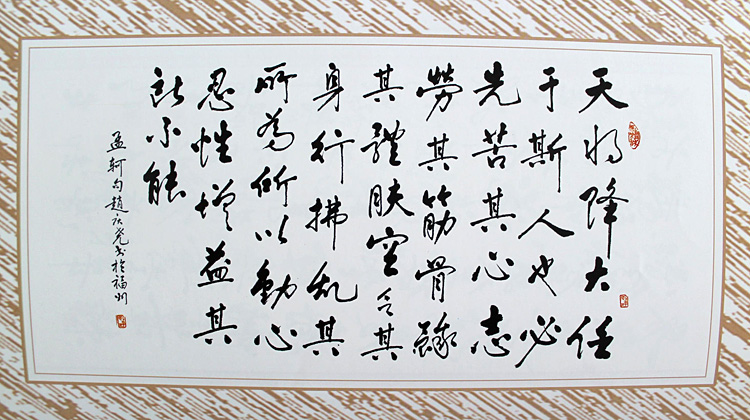 天将降大任
于斯人也必
先苦其心志
勞其筋骨餓
其體肤空乏其
身行拂乱其
所為所以動心
忍性增益其
所不能
孟軻句趙庆书於福州